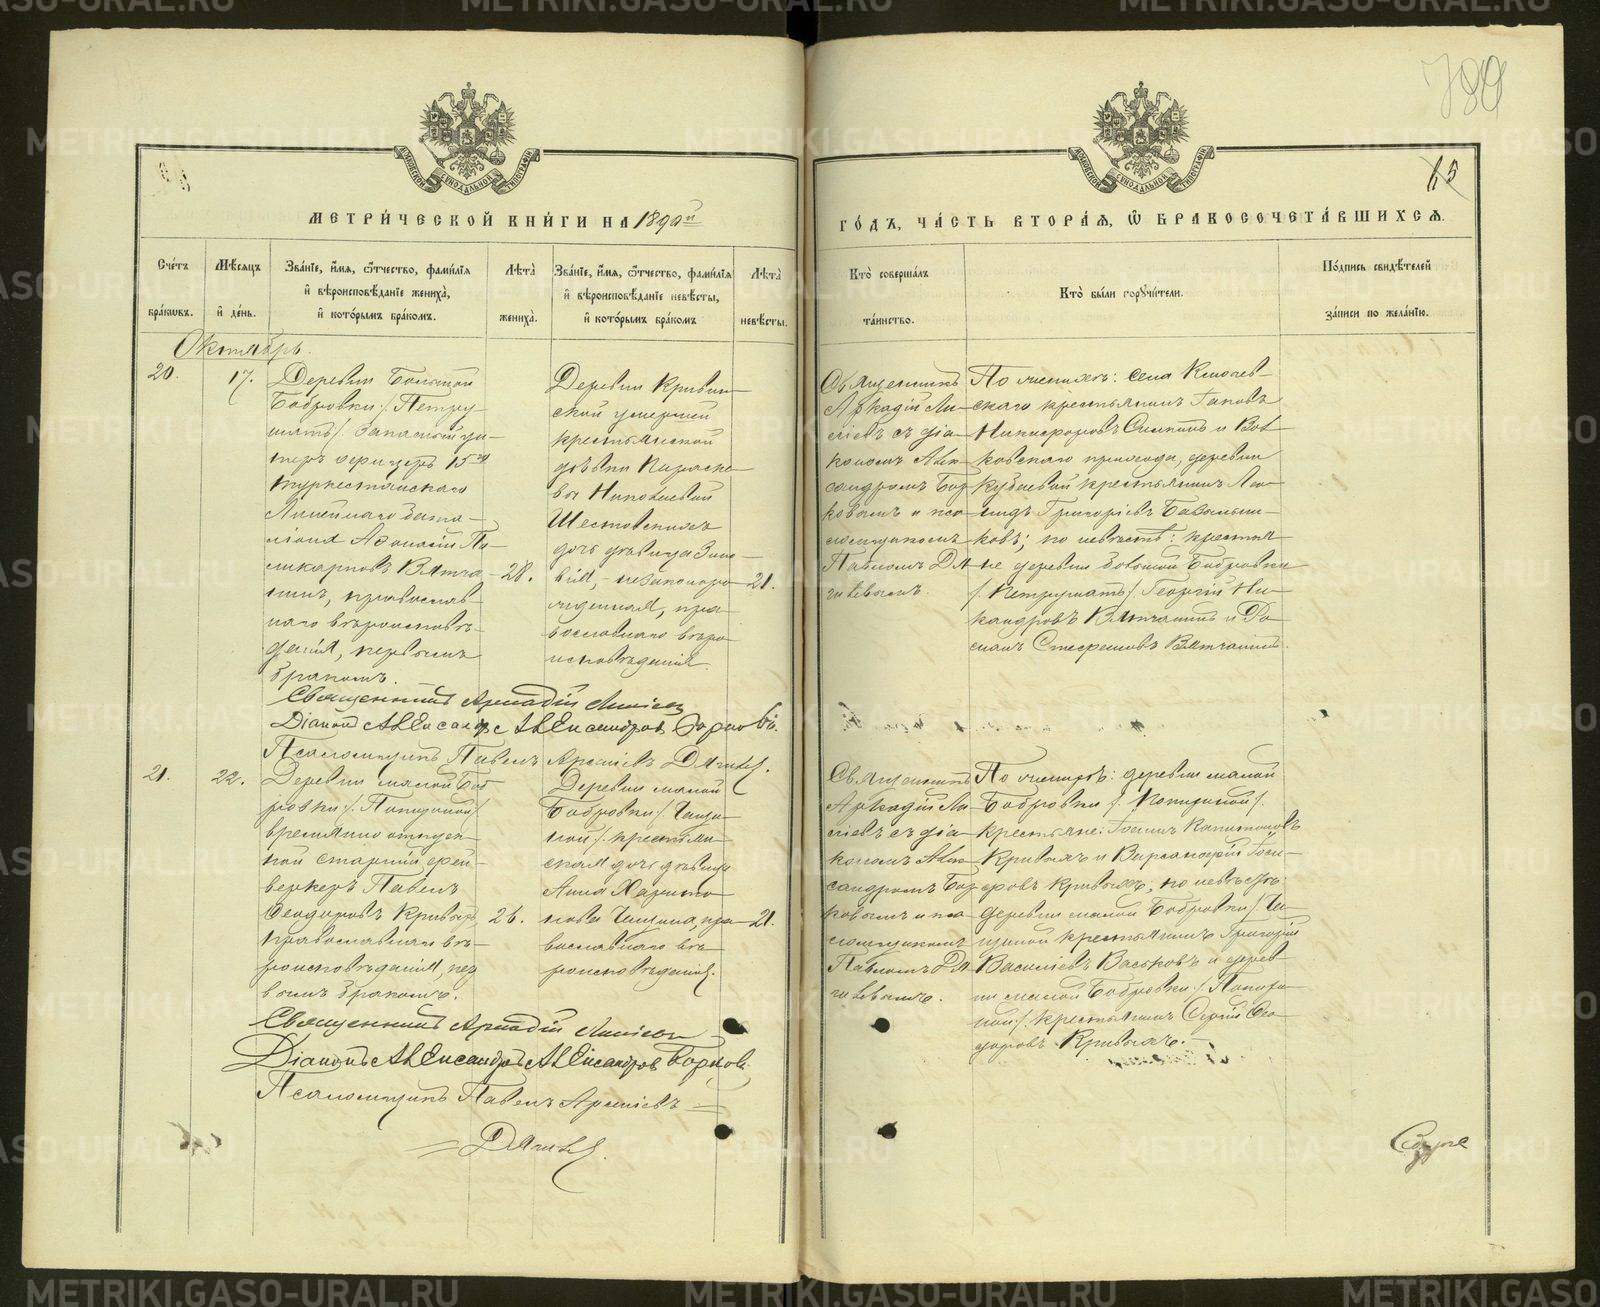 METRIKI.GASO-URAL.RU
МЕТРИ́ЧЕСКОЙ КНИ́ГИ НА 1890й
ГО́ДЪ, ЧА́СТЬ ВТОРА́Я, Ѿ БРАКОСОЧЕТА́ВШИХСЯ.
65
Сче́тъ бра́кѡвъ.
Мѣ́сяцъ и҆ де́нь.
Зва́нїе, и҆́мя, ѻ҆́тчество, фами́лїя и҆ вѣроисповѣ́данїе жениха̀, и҆ кото́рымъ бра́комъ.
Лѣта̀ жениха̀.
Зва́нїе, и҆́мя, ѻ҆́тчество, фами́лїя и҆ вѣроисповѣ́данїе невѣ́сты, и҆ кото́рымъ бра́комъ
Лѣта̀ невѣ́сты.
Кто̀ соверша́лъ та́инство.
Кто̀ бы́ли порꙋчи́тели.
По́дпись свидѣ́телей за́писи по жела́нїю.
Октябрь.
20.
17.
Деревни Большой
Бобровки /: Петру-
шатъ /: запасный ун-
теръ офицеръ 15го
туркестанскаго
Линейнаго бата-
ліона Аѳонасій По-
ликарповъ Вятча-
нинъ, православ-
наго вѣроисповѣ-
данія, первымъ
бракомъ.
28.
Деревни Кривин-
ской умершей
крестьянской
дѣвки Параске-
вы Николаевой
Шестовскихъ
дочь дѣвица Зино-
вія, - незаконоро-
жденная, пра-
вославнаго вѣро-
исповѣданія.
21.
Священникъ
Аркадій
съ діа-
кономъ Алек-
сандромъ Бор-
ковымъ и пса-
ломщикомъ
Павломъ Дя-
гилевымъ.
По женихѣ: села Ключев-
скаго крестьянинъ Іаковъ
Никифоровъ и Вол-
ковскаго прихода, деревни
крестьянинъ Лео-
нидъ Григорьевъ
ковъ; по невѣстѣ: крестья-
не деревни большой Бобровки
/: Петрушатъ /: Георгій Ни-
кандровъ Вятчанинъ и Ро-
манъ Стефановъ Вятчанинъ.
Священникъ Аркадій
Діаконъ Александръ Александровъ Борковъ.
Псаломщикъ Павелъ Арсеніевъ Дягилев.
21.
22.
Деревни малой Боб-
ровки /:
временно отпуск-
ной старшій фей-
веркеръ Павелъ
Ѳеодоровъ Кривыхъ,
православнаго вѣ-
роисповѣданія, пер-
вымъ бракомъ.
26.
Деревни малой
Бобровки /: Чащи-
ной /: крестьян-
ская дочь дѣвица
Анна Харито-
нова Чащина, пра-
вославнаго вѣ-
роисповѣданія.
21.
Священникъ
Аркадій
съ діа-
кономъ Алек-
сандромъ Бор-
ковымъ и пса-
ломщикомъ
Павломъ Дя-
гилевымъ.
По женихѣ: деревни малой
Бобровки /:
крестьяне: Іоаннъ Капитоновъ
Кривыхъ и
Кривыхъ; по невѣстѣ:
деревни малой Бобровки /: Ча-
щиной крестьянинъ Григорій
Василіевъ Васьковъ и дерев-
ни малой Бобровки /:
крестьянинъ Сергій Ѳео-
доровъ Кривыхъ.
Священникъ Аркадій
Діаконъ Александръ Александровъ Борковъ.
Псаломщикъ Павелъ Арсеніевъ
Дягилев.